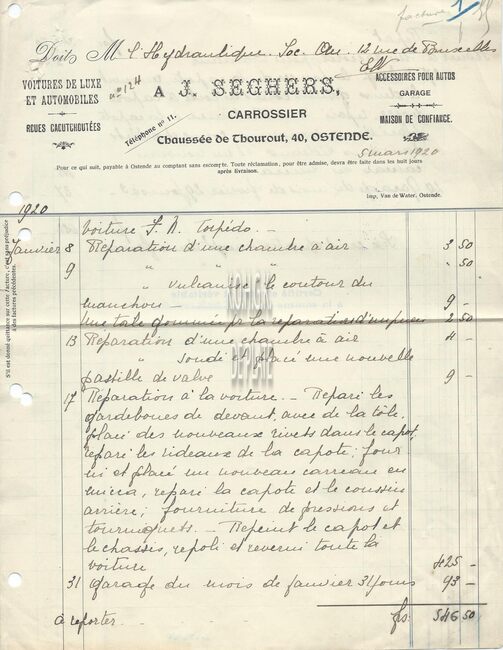 facture 1
Doit M l'Hydraulique. Soc. An. 12 rue de Bruxelles
E/V
VOITURES DE LUXE
ET AUTOMOBILES
ROUES CAOUTCHOUTÉES
no 124
A J. SEGHERS,
CARROSSIER
Téléphone No 11.
Chaussée de Thourout, 40, OSTENDE.
ACCESSOIRES POUR AUTOS
GARAGE
MAISON DE CONFIANCE.
5 mars 1920
Pour ce qui suit, payable à Ostende au comptant sans escompte. Toute réclamation, pour être admise, devra être faite dans les huit jours
après livraison.
Imp. Van de Water, Ostende.
S'il est donné quittance sur cette facture, c'est sans préjudice
à des factures précédentes.
1920
Voiture F. N. Torpédo. -
Janvier 8 Réparation d'une chambre à air 3 50
9 " " " " 50
" Vulcanisé le contour du
manchon - 9 -
Une toile gommée pr la réparation d'un pneu 2 50
13 Réparation d'une chambre à air 4 -
" Soudé et placé une nouvelle
pastille de valve 9 -
17 Réparation à la voiture. - Réparé les
gardeboues de devant, avec de la tôle,
placé des nouveaux rivets dans le capot,
réparé les rideaux de la capote; four
ni et placé un nouveau carreau en
micca, réparé la capote et le coussin
arrière; fourniture de pressions et
tourniquets. - Repeint le capot et
le chassis, repoli et reverni toute la
voiture 425 -
31 garage du mois de Janvier 31 jours 93 -
à reporter. - frs. 546 50
HOHGK
DEPOT